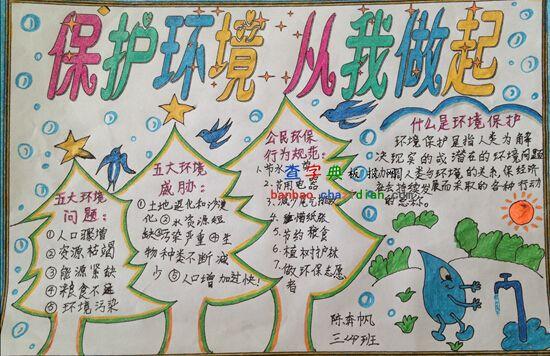 保护环境 从我做起
五大环境
问题：
①人口骤增
②资源枯竭
③能源紧缺
④粮食不足
⑤环境污染
五大环境
威胁：
①土地退化和沙漠
化②水资源短
缺③污染严重④生
物种类不断减
少⑤人口增加过快！
公民环保
行为规范：
1.节水
2.节用电器
3.减少
4.珍惜纸张
5.节约粮食
6.植树护林
7.做环保志愿
者
查字典板报网
banbao.chazidian.com
什么是环境保护
环境保护是指人类为解
决现实的或潜在的环境问题
人类与环境的关系，保经济
社会持续发展而采取的各种行动
的总称。
陈奔帆
三(4)班